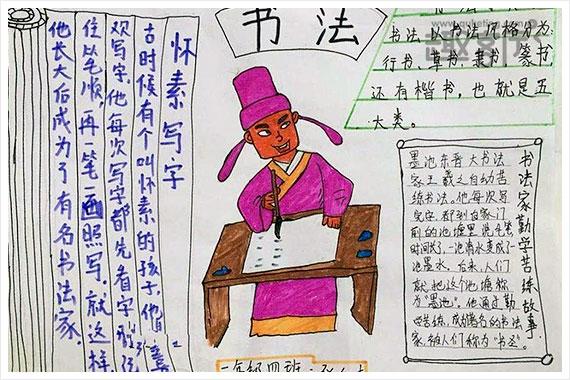 书法
书法，以书法风格分为：
行书、草书、隶书、篆书，
还有楷书，也就是五
大类。
怀素写字
古时候有个叫怀素的孩子，他喜
欢写字，他每次写字都先看字
住笔顺，再一笔一画照写。就这样
他长大后成为了有名书法家。
书法家勤学苦练故事
墨池东晋大书法
家王羲之自幼苦
练书法。他每次写
完字，都到自家门
前的池塘里洗毛笔
时间长了，一池清水变成了一
池墨水，后来，人们
就把这个池塘称
为“墨池”。他通过勤
学苦练，成为著名的书法
家，被人们称为“书圣”。
一年级四班